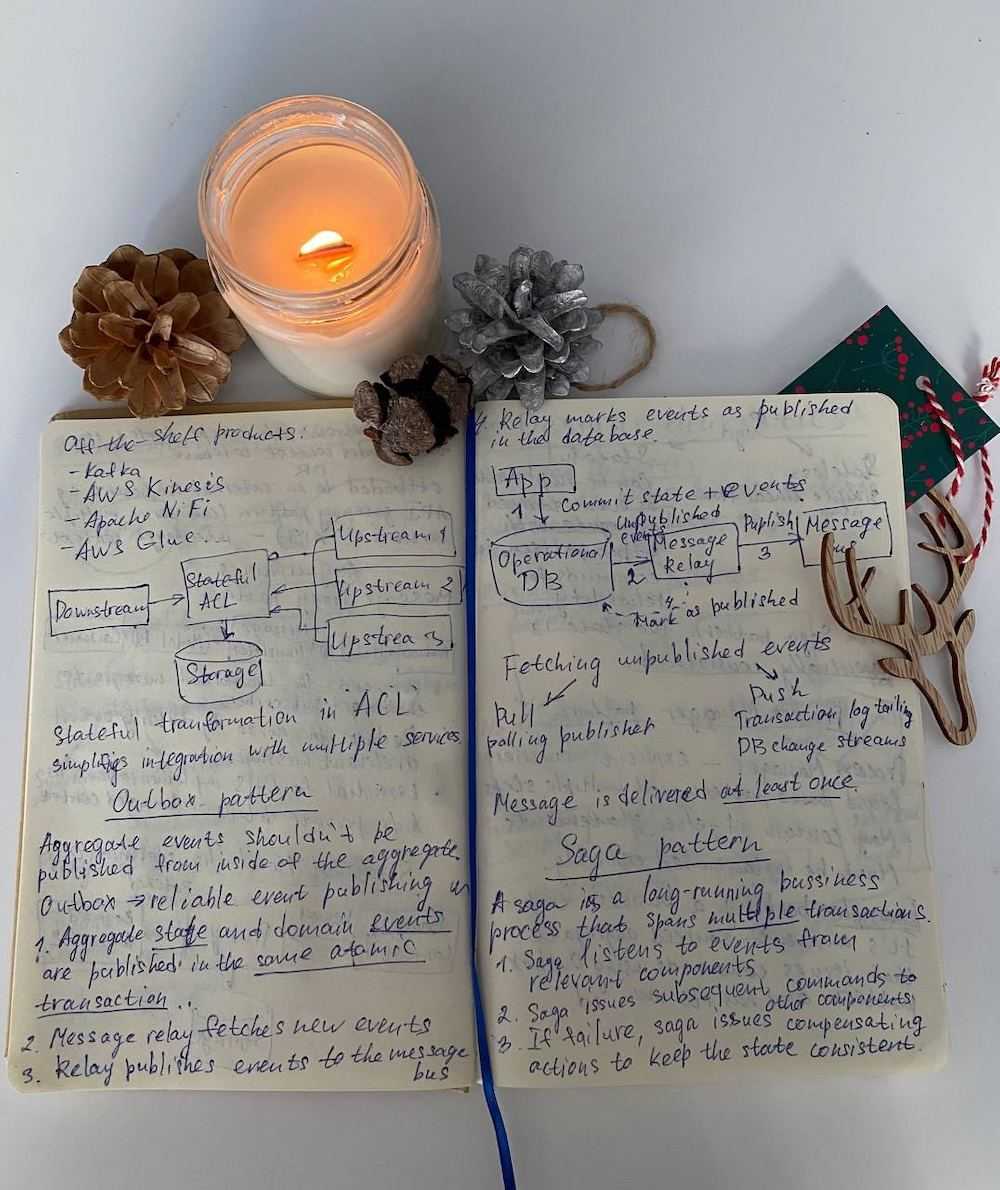 Off-the-shelf products:
- Kafka
- AWS Kinesis
- Apache NiFi
- AWS Glue.
Downstream
Stateful
ACL
Upstream 1
Upstream 2
Upstrea 3
Storage
Stateful tranformation in "ACL"
simplifies integration with multiple services.
Outbox pattern
Aggregate events shouldn't be
published from inside of the aggregate.
Outbox → reliable event publishing
1. Aggregate state and domain events
are published in the same atomic
transaction..
2. Message relay fetches new events
3. Relay publishes events to the message
bus
4. Relay marks events as published
in the database.
App
1
Commit state + events
Operational
DB
Unpublished
events
2
Message
Relay
Publish
3
Message
4.
Mark as published
Fetching unpublished events
Pull
polling publisher
Push
Transaction log tailing
DB change streams
Message is delivered at least once.
Saga pattern
A saga is a long-running bussiness
process that spans multiple transactions.
1. Saga listens to events from
relevant components
2. Saga issues subsequent commands to
other components
3. If failure, saga issues compensating
actions to keep the state consistent.